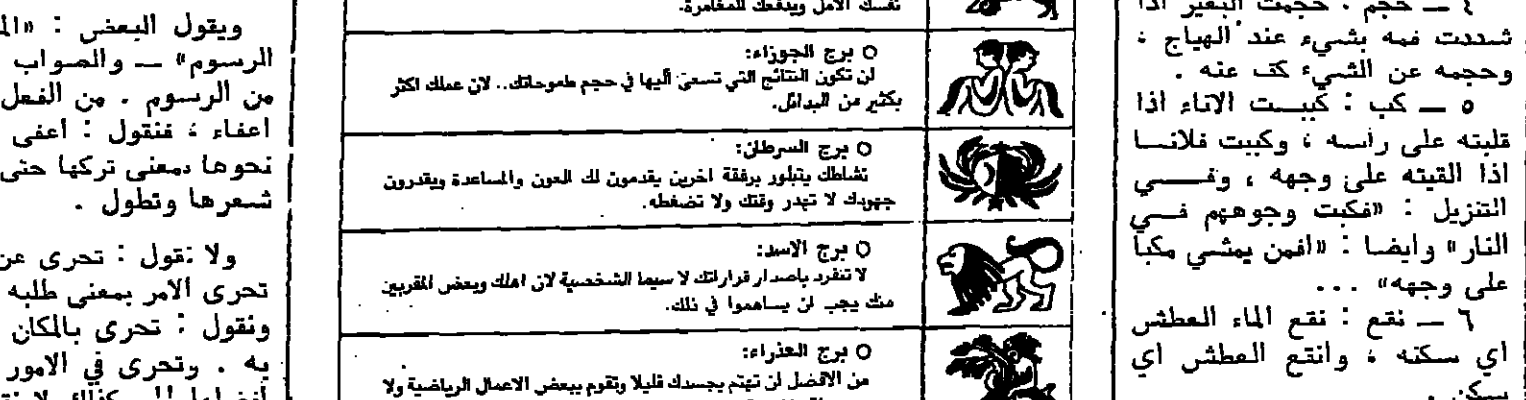 ٤ — حجم : حجمت البعير اذا
شددت فمه بشيء عند الهياج ،
وحجمه عن الشيء كف عنه .
٥ — كب : كببت الاناء اذا
قلبته على راسه ، وكببت فلانا
اذا القيته على وجهه ، وفي
التنزيل : «فكبت وجوههم في
النار» وايضا : «افمن يمشي مكبا
على وجهه» ...
٦ — نقع : نقع الماء العطش
اي سكنه ، وانتقع العطش اي
سكن .
نفسك الامل ويدفعك للمغامرة.
برج الجوزاء:
لن تكون النتائج التي تسعى اليها في حجم طموحاتك.. لان عملك اكثر
بكثير من البدائل.
برج السرطان:
نشاطك يتبلور برفقة اخرين يقدمون لك العون والمساعدة ويقدرون
جهودك لا تهدر وقتك ولا تضغطه.
برج الاسد:
لا تنفرد باصدار قراراتك لا سيما الشخصية لان اهلك وبعض المقربين
منك يجب ان يساهموا في ذلك.
برج العذراء:
من الافضل ان تهتم بجسدك قليلا وتقوم ببعض الاعمال الرياضية ولا
ويقول البعض :
الرسوم» — والصواب
من الرسوم . من الفعل
اعفاء ، فنقول : اعفى
نحوها بمعنى تركها حتى
شعرها وتطول .
ولا نقول : تحرى عن
تحرى الامر بمعنى طلبه
ونقول : تحرى بالمكان
به . وتحرى في الامور